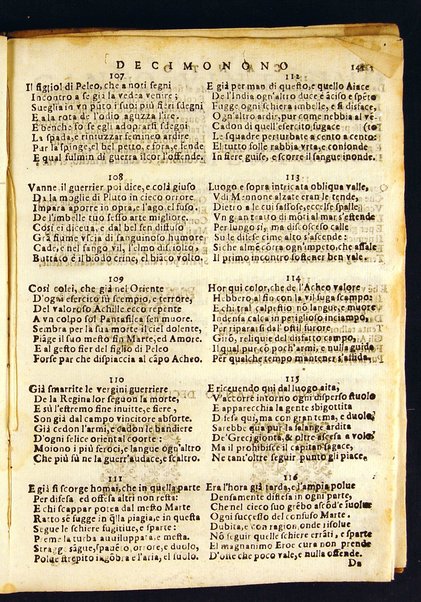 DECIMONONO
107
Il figliol di Peleo, che a noti segni
Incontro a se già la vedea venire;
Sueglia in vn pũto i suoi più fieri sdegni
E a la rota de l'odio aguzza l'ire.
E benche so be segli adoprarsi sdegni
La spada, e rintuzzar feminco ardire
Pur la spinge, el bel petto, e fora, e fende
E qual fulmin di guerra ilcor l'offende.
108
Vanne il guerrier poi dice, e colà giuso
Da la moglie di Pluto in cieco orrore.
Impara aporre in opra, e far l'uso
De l'imbelle tuo sesso arte migliore.
Così ei diceua, e dal bel sen diffuso
Già fiume vscia di sanguinoso humore
Cade, e nel sangue vil, l'elmo disciolto
Buttato è il biōdo crine, el biāco volto.
109
Così colei, che già nel Oriente
D'ogni esercito fù scempio, e terrore,
Del valoroso Achille ecco repente
A vn colpo sol Pantasilea sen more.
Sembra per la sua morte il ciel dolente,
Piāge il suo mesto fin Marte, ed Amore.
E al gesto fier del figlio di Peleo
Forse par che dispiaccia al cāpo Acheo.
110
Già smarrite le vergini guerriere
De la Regina lor seguon la morte,
E sù l'estremo fine inuitte, e fiere,
Son già dal campo vincitore absorte.
Già cedon l'armi, e cadon le bandiere
D'ogni felice oriental coorte:
Moiono i più feroci, e langue ogn'altro
Che più sù ne la guerr'audace, e scaltro.
111
E già si scorge homai, che in quella parte
Per difesa ed offesa altri non resta:
E chi scappar potea dal mesto Marte
Ratto se fugge in qlla piagia; e in questa
Segue le schiere fugitiue, e sparte:
Preme la turba auuiluppata, e mesta.
Strage, sāgue, spauēto, orrore, e duolo,
Polue, strepito ingōbra e l'aria, el suolo.
112
E già per man di questo, e quello Aiace
De l'India ogn'altro duce è āciso e spēto
Fugge ogni schiera imbelle, e si disface,
Ogn'altro ardir, pur come nebbia al vē-
Cadon di quell'esercito fugace (to
Le squadre perturbate a cento a cento:
El tutto solle rabbia vrta, e confonde
In fiere guise, e scorre il sangue inonde.
113
Luogo e sopra intricata obliqua valle,
V'di Mennone alzate eran le tende,
Dietro a le cui fassose, eccelse spalle
Vn gran tratto di mōti al mar s'estende
Per lungo sì, ma discosceso calle
Su le difese cime alto s'ascende:
Siche almé corta ogn'impeto, che assale
Il primo incontro sostener ben vale.
114
Hor qui color, che de l'Acheo valore
Hebbero al fin con la vil fuga scampo:
E chi tral calpestio nō langue, e muore
Indensa calca in periglioso inciampo,
Per ripararsi dal ostil furore
Girò, relique del disfatto campo,
Il qual pur cō poch'armi, e nulla guida
Per qualche tempo mantener s'affida.
115
E riceuendo qui dal luogo aita,
V'accorre intorno ogni disperso stuolo
E apparecchia la gente sbigottita
Difesa qui, ma con gran tema, e duolo.
Sarebbe quà pur la falange ardita
De' Greci gionta, & oltre ascesa a volo:
Ma il prohibisce il capitan sagace,
Ne tant'oltre seguir punto gli piace.
116
Era l'hora già tarda, e l'ampia polue
Densamente diffusa in ogni parte,
Che nel cieco suo grēbo ascōd'e inuolue
Ogni successo del confuso Marte.
Dubita, e con ragion, onde risolue
Nō seguir quelle schiere erranti, e sparte
El magnanimo Eroe cura non prende
D'oste che poco vale, e nulla offende.
Da